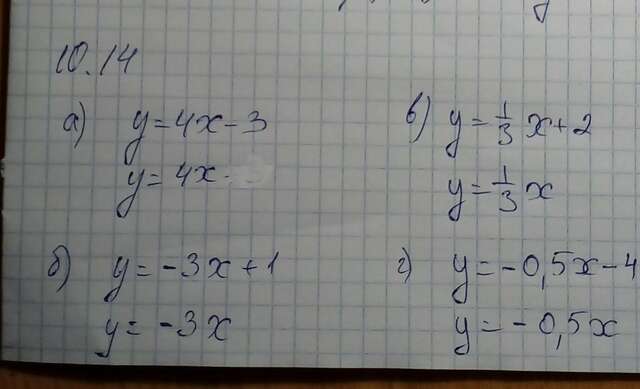 10.14
а) y=4x-3
y=4x
б) y=-3x+1
y=-3x
в) y=1/3x+2
y=1/3x
г) y=-0,5x-4
y=-0,5x